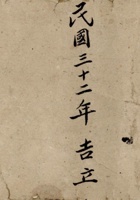 民國三十二年 吉立